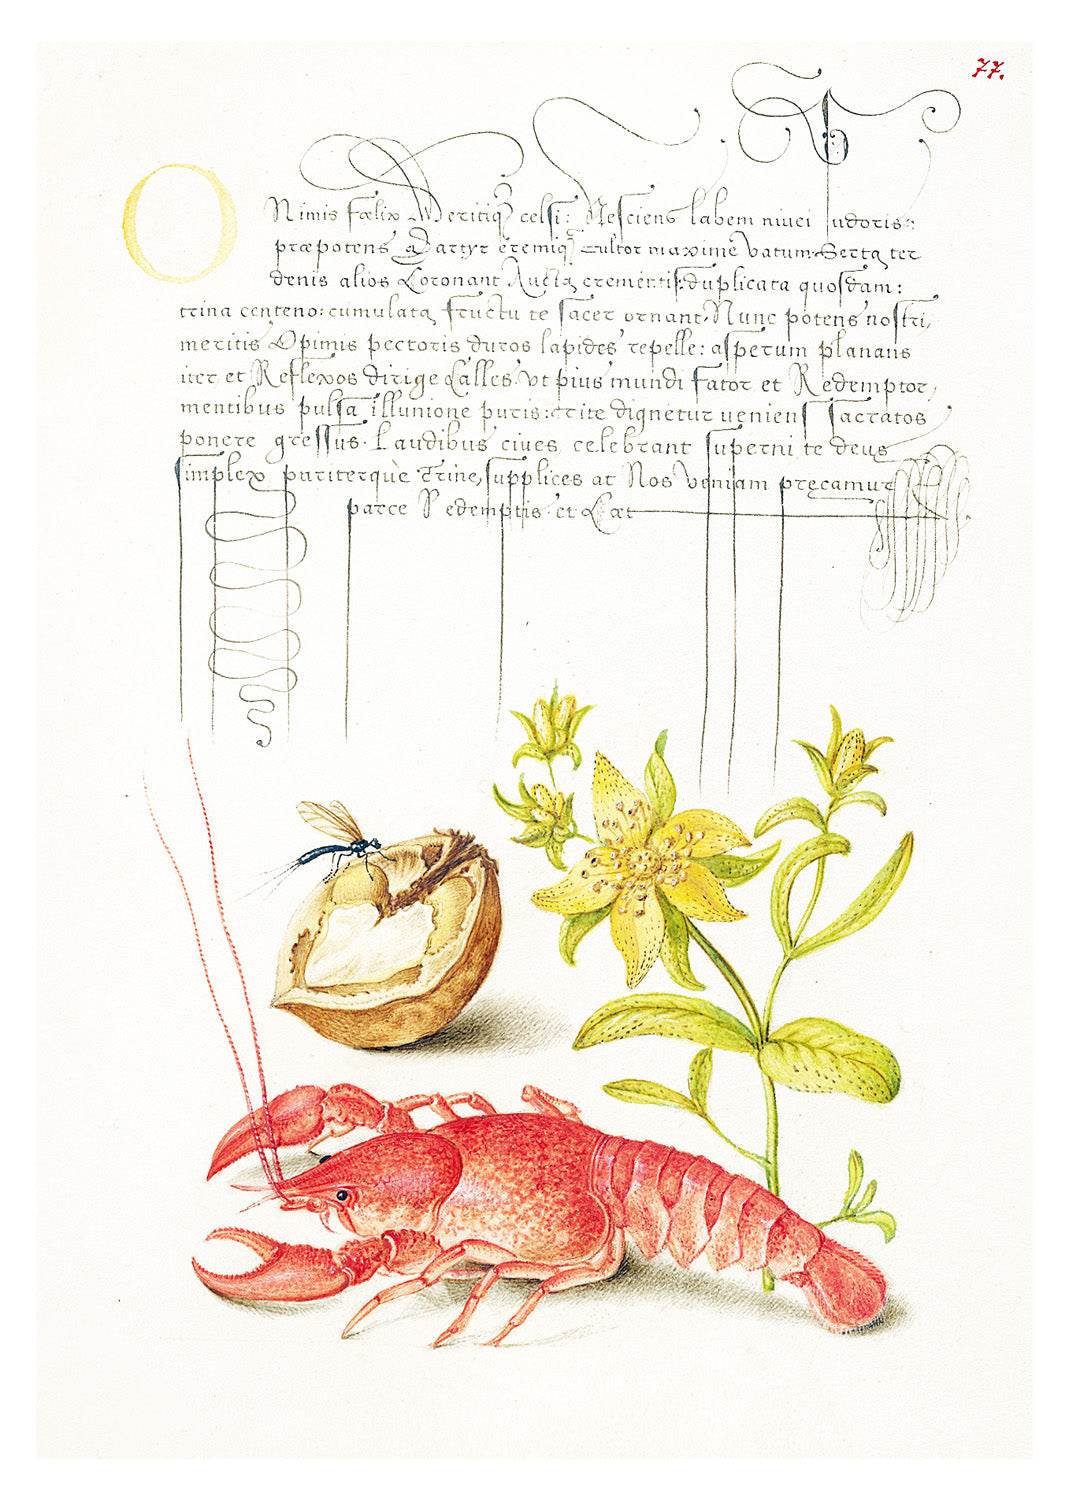 77.
O Nimis fœlix Meritiq celsi: Nesciens labem nivei pudoris:
præpotens Martyr eremiq Cultor maxime Vatum. Serta ter
denis alios Coronant Aucta crementis: duplicata quosdam:
trina centeno: cumulata fructu te sacer ornant. Nunc potens nostri,
meritis Opimis pectoris duros lapides repelle: asperum planans
iter et Reflexos dirige Calles. Vt pius mundi Sator et Redemptor,
mentibus pulsa illunione puris: rite dignetur ueniens sacratos
ponere gressus. Laudibus cives celebrant superni te deus
simplex pariterquè Trine, supplices at Nos Veniam precamur
parce Redemptis. et Cæt